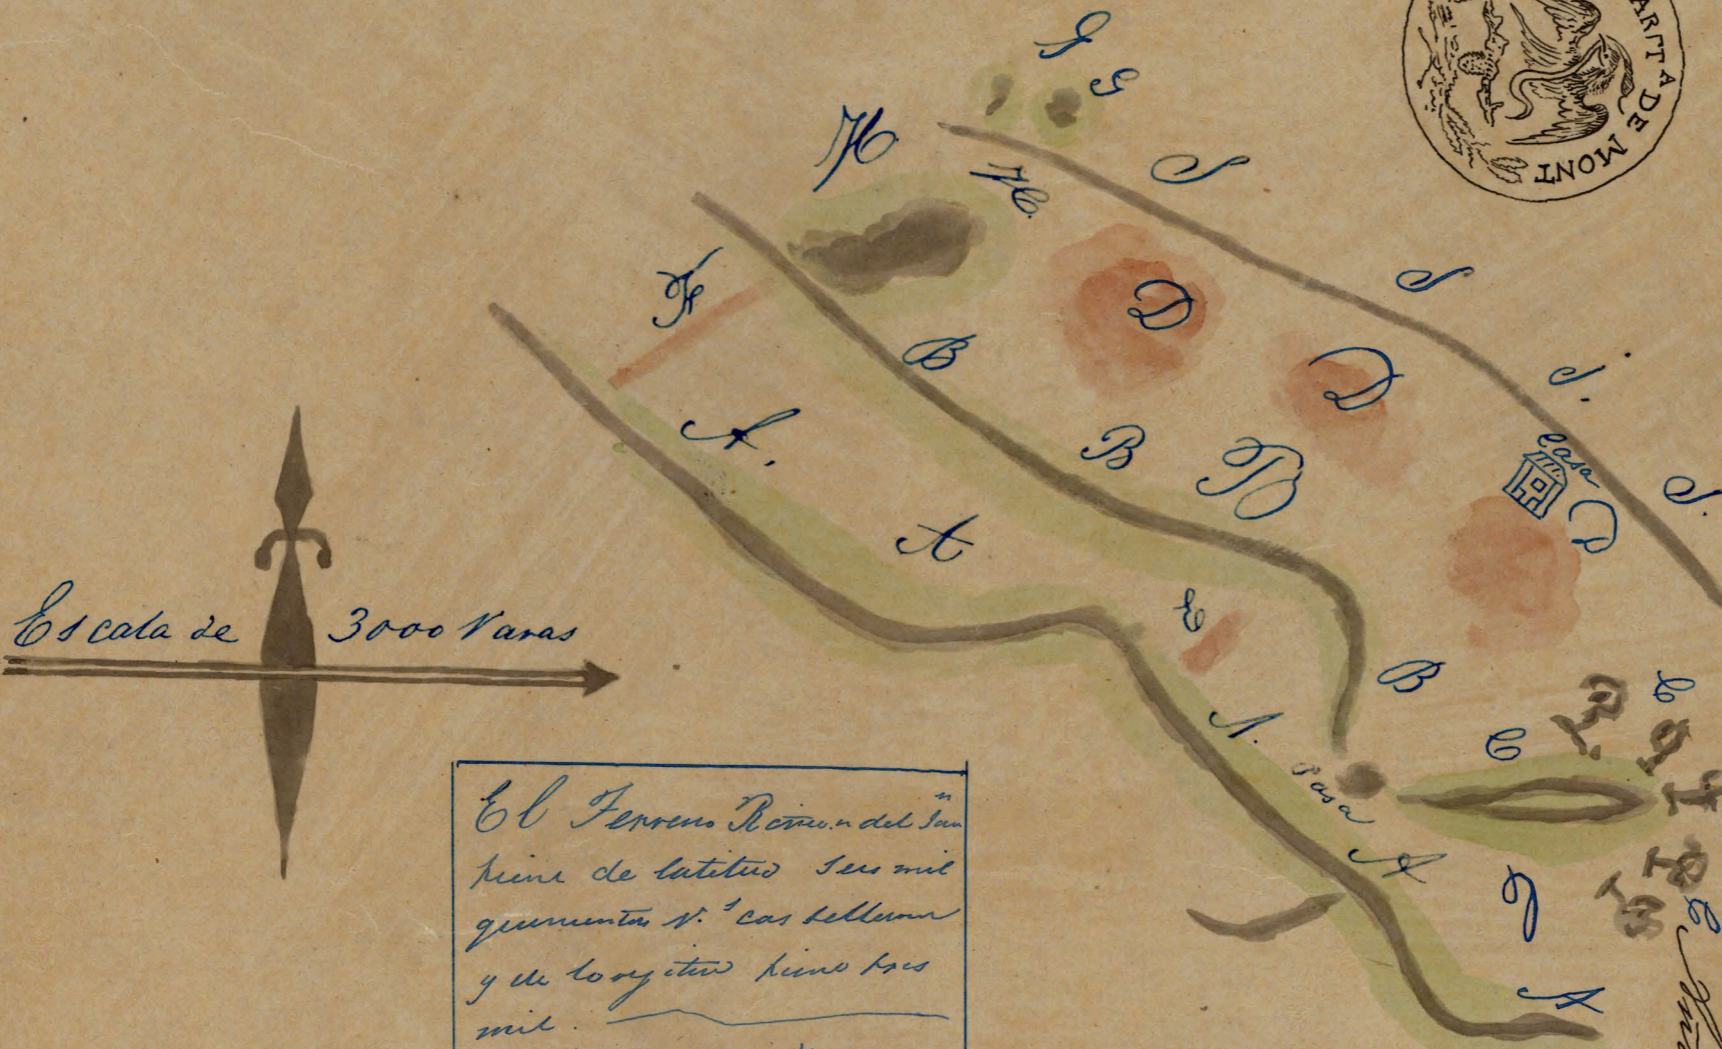 G
G
ARITA DE MONT
H
H
S
S
S.
S.
F
D
D
D
B
B
B
B
Casa
A.
A
E
A.
A
A
Escala de 3000 Varas
C
C
C
Casa
El Terreno Rincon del San
tiene de latitud Seis mil
quinientas v.s castellanas
y de longitud tiene tres
mil.